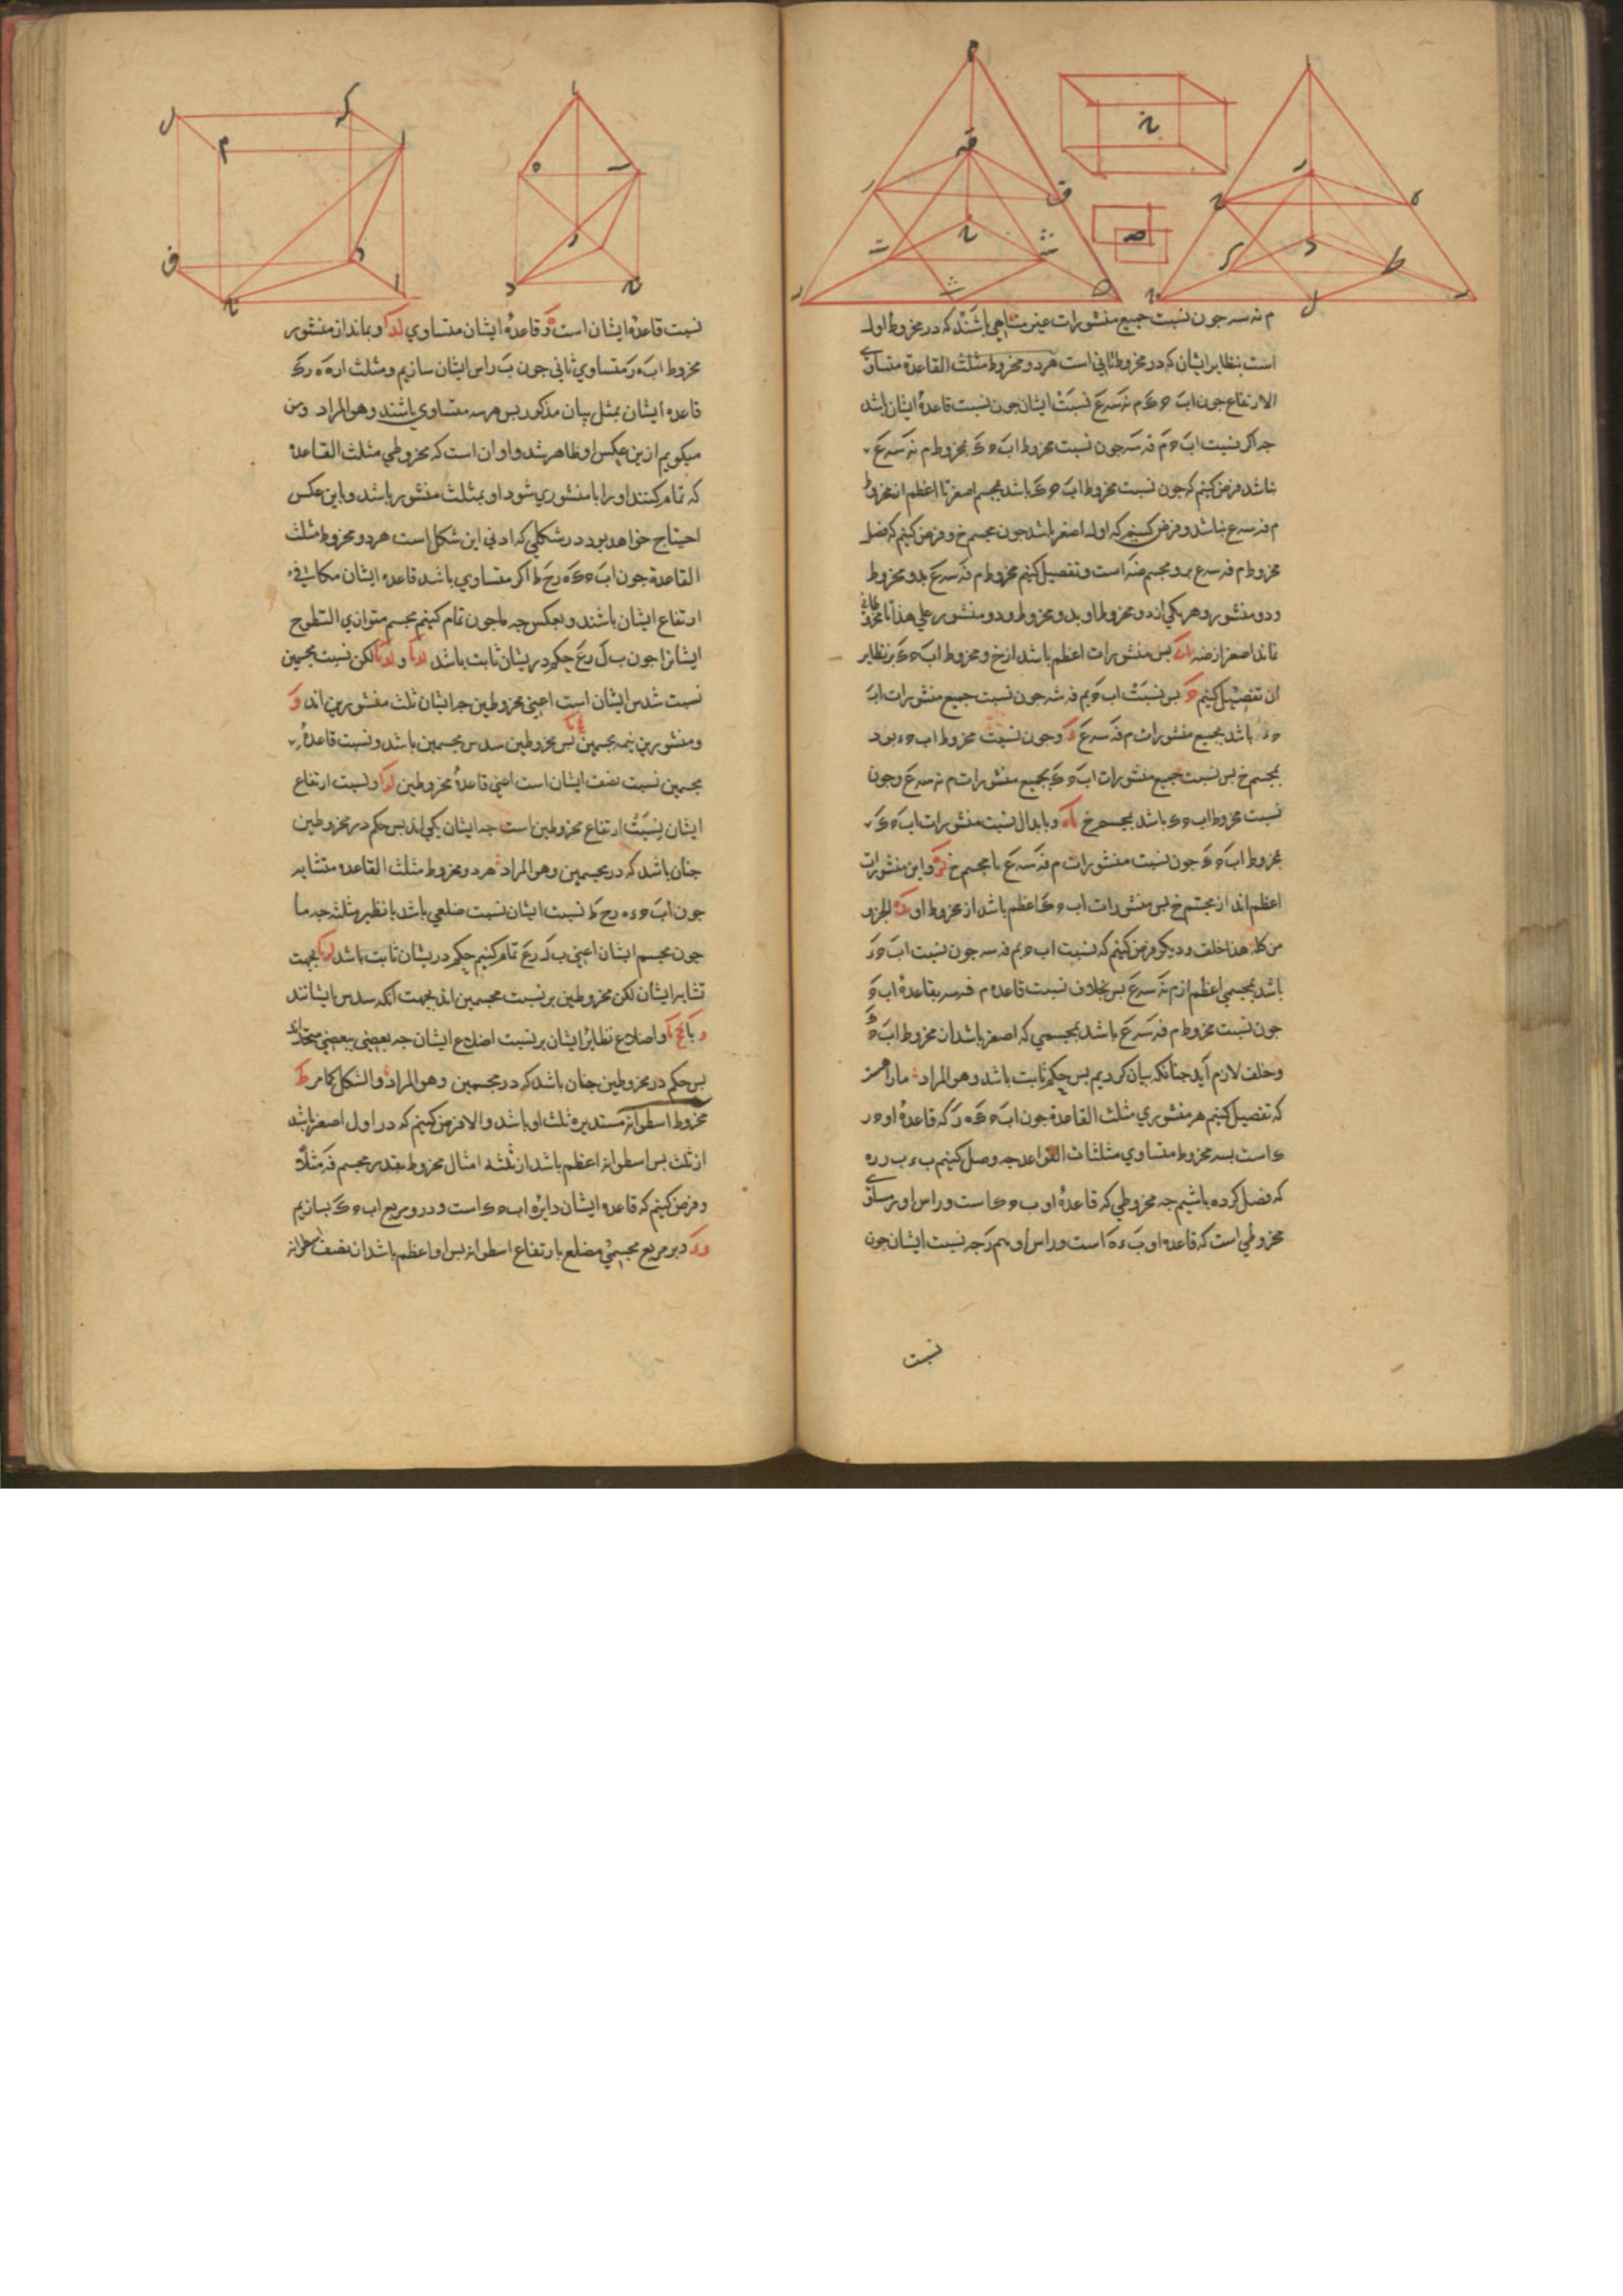 م نه سه جون نسبت جميع منشورات غير متناهي باشند كه در مخروط اول
است بنظاير ايشان كه در مخروط ثاني است هر دو مخروط مثلث القاعدة متساوي
الارتفاع جون اب ح ء م نه سه ع نسبت ايشان جون نسبت قاعدهٔ ايشان باشد
جه اكر نسبت اب ح م فه سه جون نسبت مخروط اب ح ء بمخروط م نه سه ع
نباشد فرض كنيم كه جون نسبت مخروط اب ح ء باشد بمجسم اصغر تا اعظم از مخروط
م فه سه ع نباشد و فرض كنيم كه اولا اصغر باشد جون مجسم خ و فرض كنيم كه فضل
مخروط م فه سه ع برو مجسم ضه است و تفصيل كنيم مخروط م فه سه ع بدو مخروط
و دو منشور و هر يكي از دو مخروط او بدو مخروط و دو منشور علي هذا تا
ماند اصغر از ضه بس منشورات اعظم باشد از خ و مخروط اب ح ء بر نظاير
ان تفصيل كنيم بس نسبت اب ح بم فه سه جون نسبت جميع منشورات اب
ح ء باشد بجميع منشورات م فه سه ع و جون نسبت مخروط اب ح ء بود
بمجسم خ بس نسبت جميع منشورات اب ح ء بجميع منشورات م نه سه ع وجون
نسبت مخروط اب ح ء باشد بمجسم خ و بابدال نسبت منشورات اب ح ء
بمخروط اب ح ء جون نسبت منشورات م فه سه ع با مجسم خ و اين منشورات
اعظم اند از مجسم خ بس منشورات اب ح ء اعظم باشد از مخروط او الجزو
من كله هذا خلف و ديكر فرض كنيم كه نسبت اب ح بم فه سه جون نسبت اب ح ء
باشد بمجسمي اعظم از م نه سه ع بس بخلاف نسبت قاعده م فه سه بقاعدهٔ اب ح
جون نسبت مخروط م فه سه ع باشد بمجسمي كه اصغر باشد از مخروط اب ح ء
وخلف لازم آيد جنانكه بيان كرديم بس حكم ثابت باشد وهو المراد ما را هست
كه تفصيل كنيم هر منشوري مثلث القاعدة جون اب ح ء ه ر كه قاعدهٔ او ح ر
ء است بسه مخروط متساوي مثلثات القواعد جه وصل كنيم ب ء ب ر ر ه
كه فصل كرده باشيم جه مخروطي كه قاعدهٔ او ب ح ء است و راس او ر مساوي
مخروطي است كه قاعده او ب ء ه است و راس او هم ر جه نسبت ايشان جون
نسبت
نسبت قاعدهٔ ايشان است و قاعدهٔ ايشان متساوي و بماند از منشور
مخروط اب ه ر متساوي ثاني جون ب راس ايشان سازيم و مثلث
قاعده ايشان بمثل بيان مذكور بس هر سه متساوي باشند وهو المراد ومن
ميكويم از ين عكس او ظاهر شد و او ان است كه مخروطي مثلث القاعدة
كه تمام كنند او را با منشوري شود او بمثلث منشور باشد و باين عكس
احتياج خواهد بود در شكلي كه ادني اين شكل است هر دو مخروط مثلث
القاعدة جون اب ح ء ه ر ح ط اكر متساوي باشد قاعده ايشان مكافي
ارتفاع ايشان باشند و بعكس جه ما جون تمام كنيم مجسم متوازي السطوح
ايشانرا جون ب ل ر ع حكم در يشان ثابت باشد لكن نسبت مجسمين
نسبت سدس ايشان است اعني مخروطين جه ايشان ثلث منشورين اند و
و منشورين نيمه مجسمين بس مخروطين سدس مجسمين باشد و نسبت قاعدهٔ
مجسمين نسبت نصف ايشان است اعني قاعدهٔ مخروطين و نسبت ارتفاع
ايشان نسبت ارتفاع مخروطين است جه ايشان يكي اند بس حكم در مخروطين
جنان باشد كه در مجسمين وهو المراد هر دو مخروط مثلث القاعده متشابه
جون اب ح ء ه ر ح ط نسبت ايشان نسبت ضلعي باشد با نظير مثلثه جه ما
جون مجسم ايشان اعني ب ل ر ع تمام كنيم حكم در يشان ثابت باشد بجهت
تشابه ايشان لكن مخروطين بر نسبت مجسمين اند بجهت آنكه سدس ايشانند
و اضلاع نظاير ايشان بر نسبت اضلاع ايشان جه بعضي ببعضي متحداند
بس حكم در مخروطين جنان باشد كه در مجسمين وهو المراد والشكل كامر
مخروط اسطوانه مستديره ثلث او باشد والا فرض كنيم كه در اول اصغر باشد
از ثلث بس اسطوانه اعظم باشد از ثلثه امثال مخروط بقدر مجسم فه مثلا
و فرض كنيم كه قاعده ايشان دايرهٔ اب ح ء است و درو مربع اب ح ء بسازيم
و بر مربع مجسمي مضلع بارتفاع اسطوانه بس او اعظم باشد از نصف اسطوانه